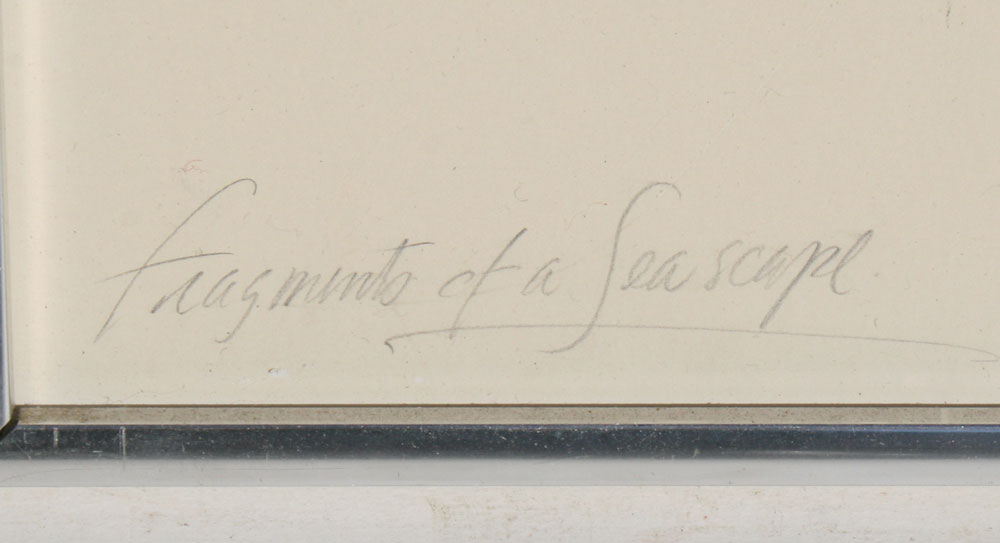 Fragments of a Seascape